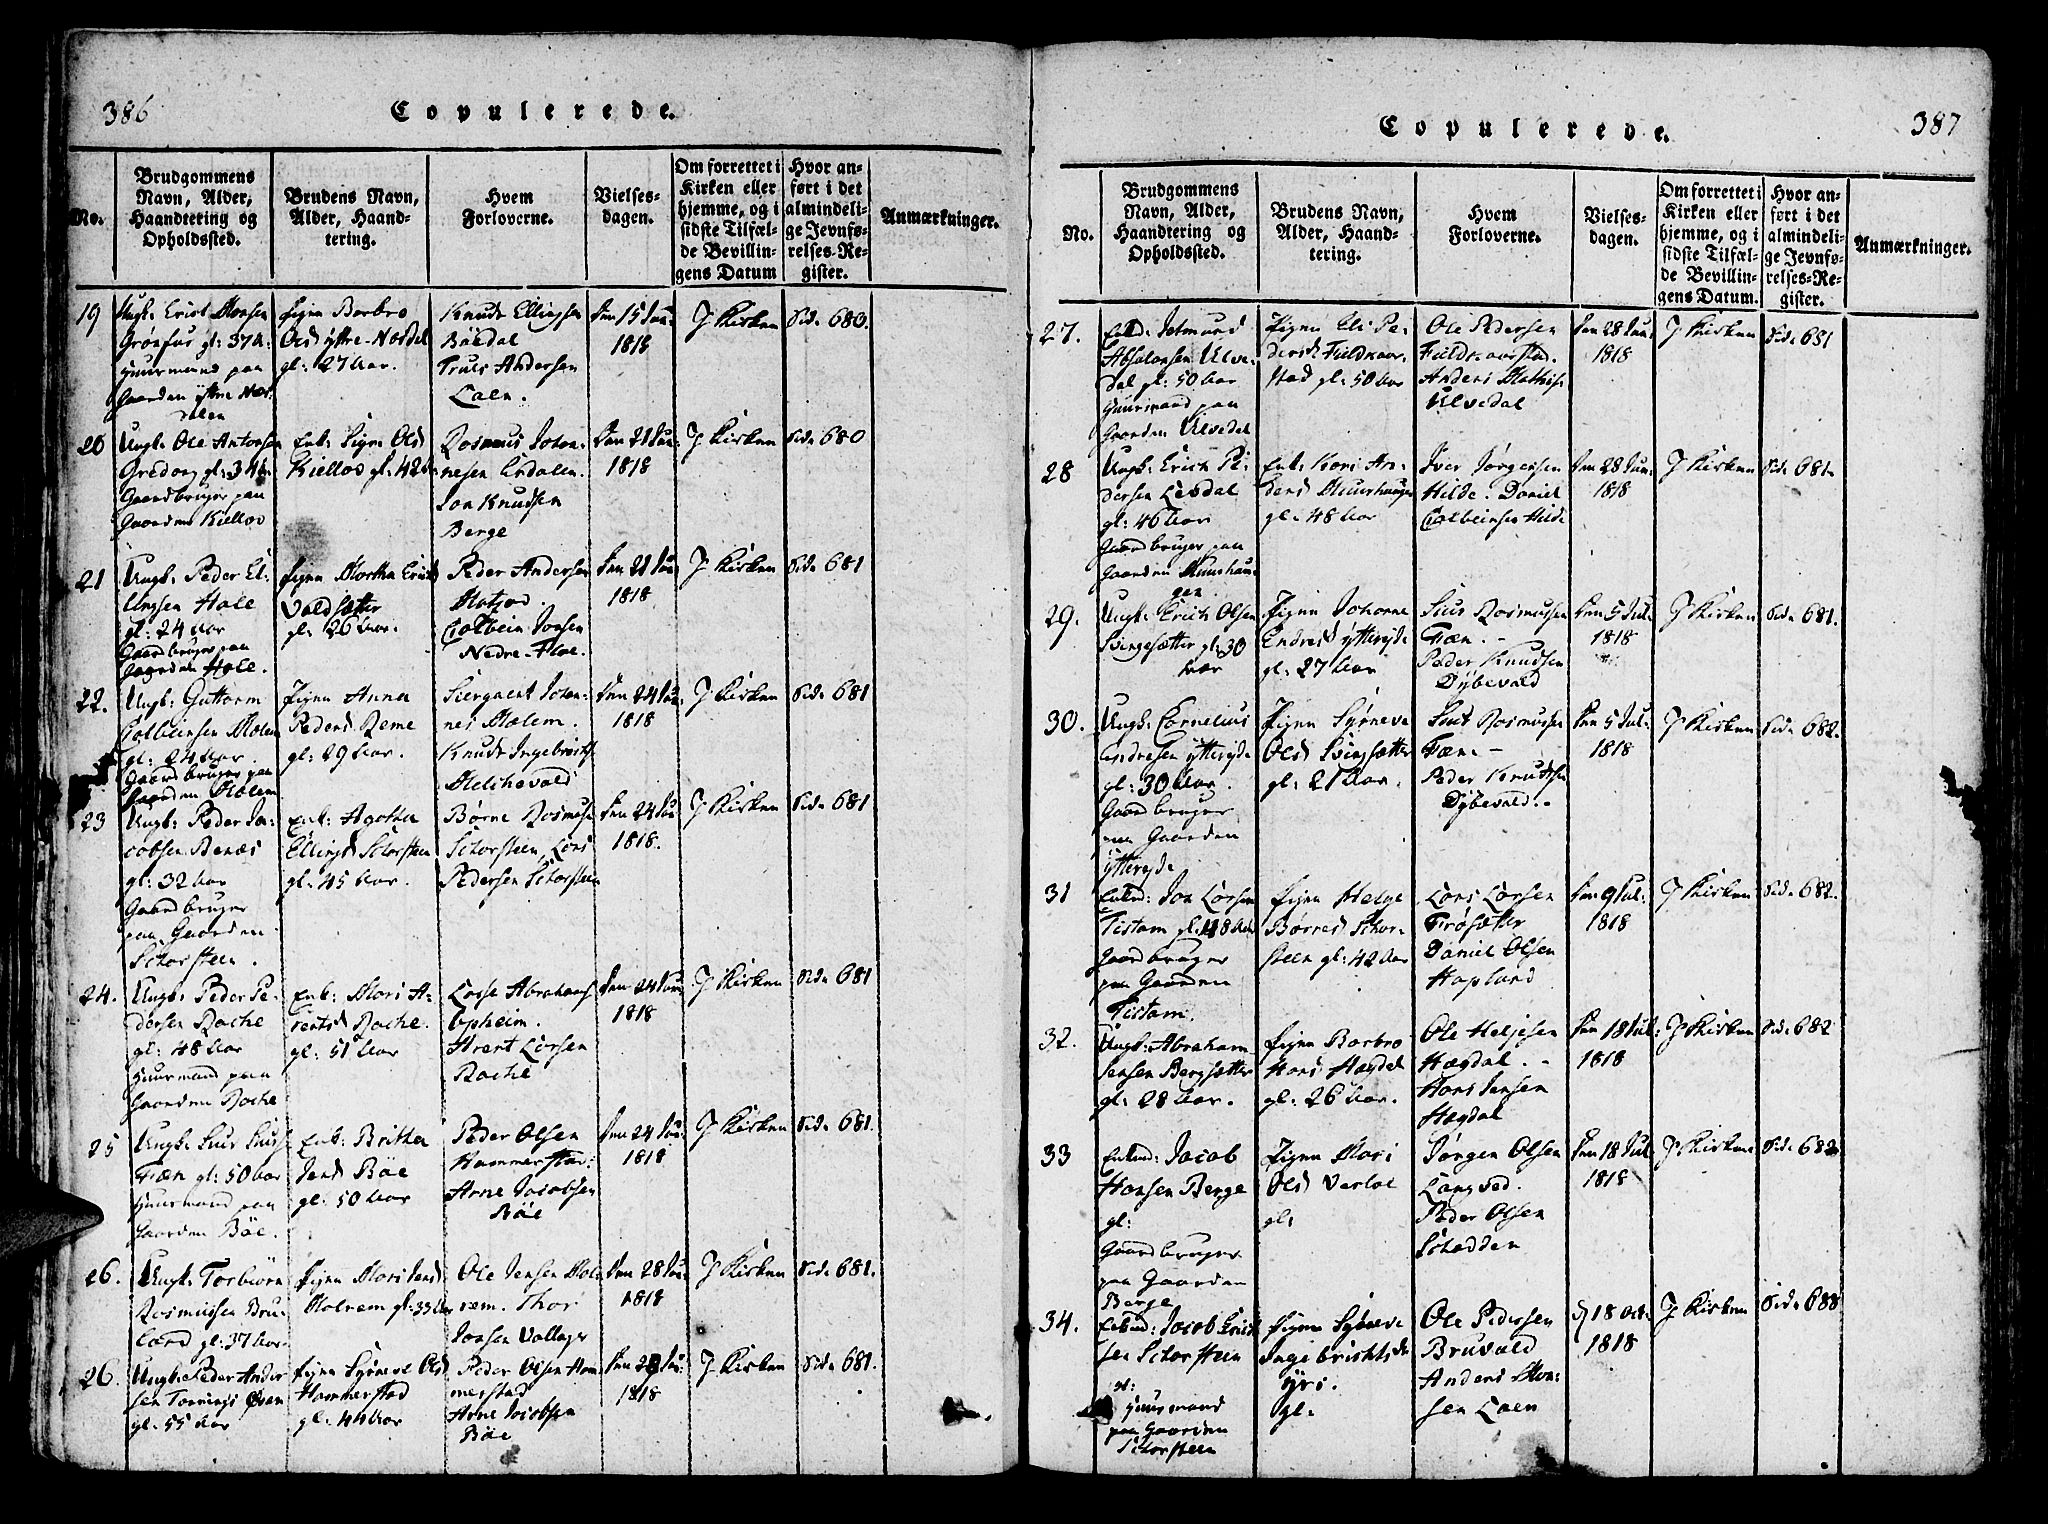 386
Copulerede.
No.
Brudgommens
Navn, Alder,
Haandtering og
Opholdssted.
Brudens Navn,
Alder, Haand-
tering.
Hvem
Forloverne.
Vielses-
dagen.
Om forrettet i
Kirken eller
hjemme, og i
sidste Tilfæl-
de Bevillin-
gens Datum
Hvor an-
ført i det
almindeli-
ge Jevnfø-
relses-Re-
gister.
Anmærkninger.
19
Ungk: Erich Monsen
gl: 37 Aar
Huusmand paa
Gaarden Yttre
Pigen Barbro
Olsd Yttre-
gl: 27 Aar.
Knud Ellingsen
Truls Andersen
Loen.
Den 15 Jun:
1818
J Kirken
Side 680.
20
Ungk: Ole Antonsen
gl: 34
Gaardbruger paa
Gaarden
Enk: Signe Olsd
gl: 42
Rasmus Johan-
nesen Erdalen
Jon Knudsen
Berge
Den 21 Jun:
1818
J Kirken
Side 680
21
Ungk: Peder El-
lingsen Hole
gl: 24 Aar
Gaardbruger paa
Gaarden Hole.
Pigen Martha Erichsd
gl: 26 Aar.
Peder Andersen
Colbein Jonsen
Nedre-Floe.
Den 21 Jun
1818
J Kirken
Side 681
22.
Ungk: Guttorm
Colbeinsen
gl: 24 Aar.
Gaardbruger paa
Gaarden
Pigen Anna
Pedersd Reme
gl: 29 Aar.
Siergient Johan-
nes
Knud
Melchevold
Den 24 Jun
1818
J Kirken
Side 681
23
Ungk: Peder Ja-
cobsen Renæs
gl: 32 Aar
Gaardbruger
paa Gaarden
Schorsteen.
Enk: Agatha
Ellingsd Schorsteen
gl: 45 Aar.
Børne Rasmuss
Schorsteen, Lars
Pedersen Schorsteen
Den 24 Jun
1818.
J Kirken
Side 681
24.
Ungk: Peder Pe-
dersen Rache
gl: 48 Aar
Huusmand paa
Gaarden Rache
Enk: Mari A-
rentsd Rache.
gl: 51 Aar
Lasse Abrahams
Opheim.
Arent Larsen
Rache
Den 24 Jun
1818
J Kirken
Side 681
25
Ungk: Siur
Fæn gl: 50 Aar
Huusmand paa
Gaarden Böe.
Enk: Britha
Jensd Böe
gl: 50 Aar
Peder Olsen
Hammerstad:
Arne Jacobsen
Böe
Den 24 Jun:
1818
J Kirken
Side 681.
26.
Ungk: Torbiørn
Rasmussen Bru-
land gl: 37 Aar.
Pigen Mari Jensd
gl: 33 Aar
Ole Jensen
Thor
Jonsen
Den 28 Jun
1818
J Kirken
Side 681.
26.
Ungk: Peder Ander
sen
gl: 55 Aar
Pigen Synneve Olsd
Hammerstad
gl: 44 Aar
Peder Olsen Ham
merstad
Arne Jacobsen
Böe
Den 28 Jun:
1818
J Kirken
Side 681.
387
Copulerede.
No.
Brudgommens
Navn, Alder,
Haandtering og
Opholdssted.
Brudens Navn,
Alder, Haand-
tering.
Hvem
Forloverne.
Vielses-
dagen.
Om forrettet i
Kirken eller
hjemme, og i
sidste Tilfæl-
de Bevillin-
gens Datum.
Hvor an-
ført i det
almindeli-
ge Jevnfø-
relses-Re-
gister.
Anmærkninger.
27.
Jetmund
Absalonsen Ulve-
dal gl: 50 Aar
Huusmand paa
Gaarden Ulvedal
Pigen Eli Pe-
dersd
stad gl: 50 Aar
Ole Pedersen
Anders Mathis
Ulvedal
Den 28 Jun:
1818
J Kirken
Side 681
28
Ungk: Erich Pe-
dersen
gl: 46 Aar
Gaardbruger paa
Gaarden Muushau-
gen
Enk: Kari An-
dersd Muushaugen
gl: 48 Aar
Iver Jørgensen
Hilde. Daniel
Colbeinsen Hilde
Den 28 Jun:
1818
J Kirken
Side 681.
29.
Ungk: Erich Olsen
gl: 30
Aar
Pigen Johanne
Endresd Ytteryde
gl: 27 Aar
Siur Rasmusen
Fæn. -
Peder Knudsen
Dybevold
Den 5 Jul:
1818
J Kirken
Side 681.
30.
Ungk: Cornelius
Endresen Ytteryde
gl: 30 Aar.
Gaardbruger
paa Gaarden
Ytteryde
Pigen Synneve
Olsd
gl: 21 Aar.
Rasmusen
Fæn -
Peder Knudsen
Dybevold. -
Den 5 Jul:
1818
J Kirken
Side 682.
31
Enkmd: Jon Larsen
Tistam gl: 48 Aar
Gaardbruger
paa Gaarden
Tistam.
Pigen Helge
Børnesd Schor-
steen gl: 42 Aar
Lars Larsen
Frøsætter
Daniel Olsen
Hopland
Den 9 Jul:
1818
J Kirken
Side 682.
32.
Ungk: Abraham
Jensen Bergsætter
gl: 28 Aar.
Pigen Barbro
Hansd Hægdal
gl: 26 Aar.
Ole Heljesen
Hægdal. -
Hans Jensen
Hægdal
Den 18 Jul:
1818
J Kirken
Side 682
33
Enkmd: Jacob
Hansen Berge
gl:
Gaardbruger
paa Gaarden
Berge
Pigen Mari
Olsd
gl:
Jørgen Olsen
Langsed.
Peder Olsen
Schadden
Den 18 Jul
1818
J Kirken
Side 682
34.
Enkmd: Jacob Erich
sen Schorsteen
gl:
Huusmand
paa Gaarden
Schorsteen
Pigen Synneve
Ingebrichtsd
Yri.
gl:
Ole Pedersen
Bruvold
Anders Mon-
sen Loen
d 18 Oct:
1818
J Kirken
Side 688